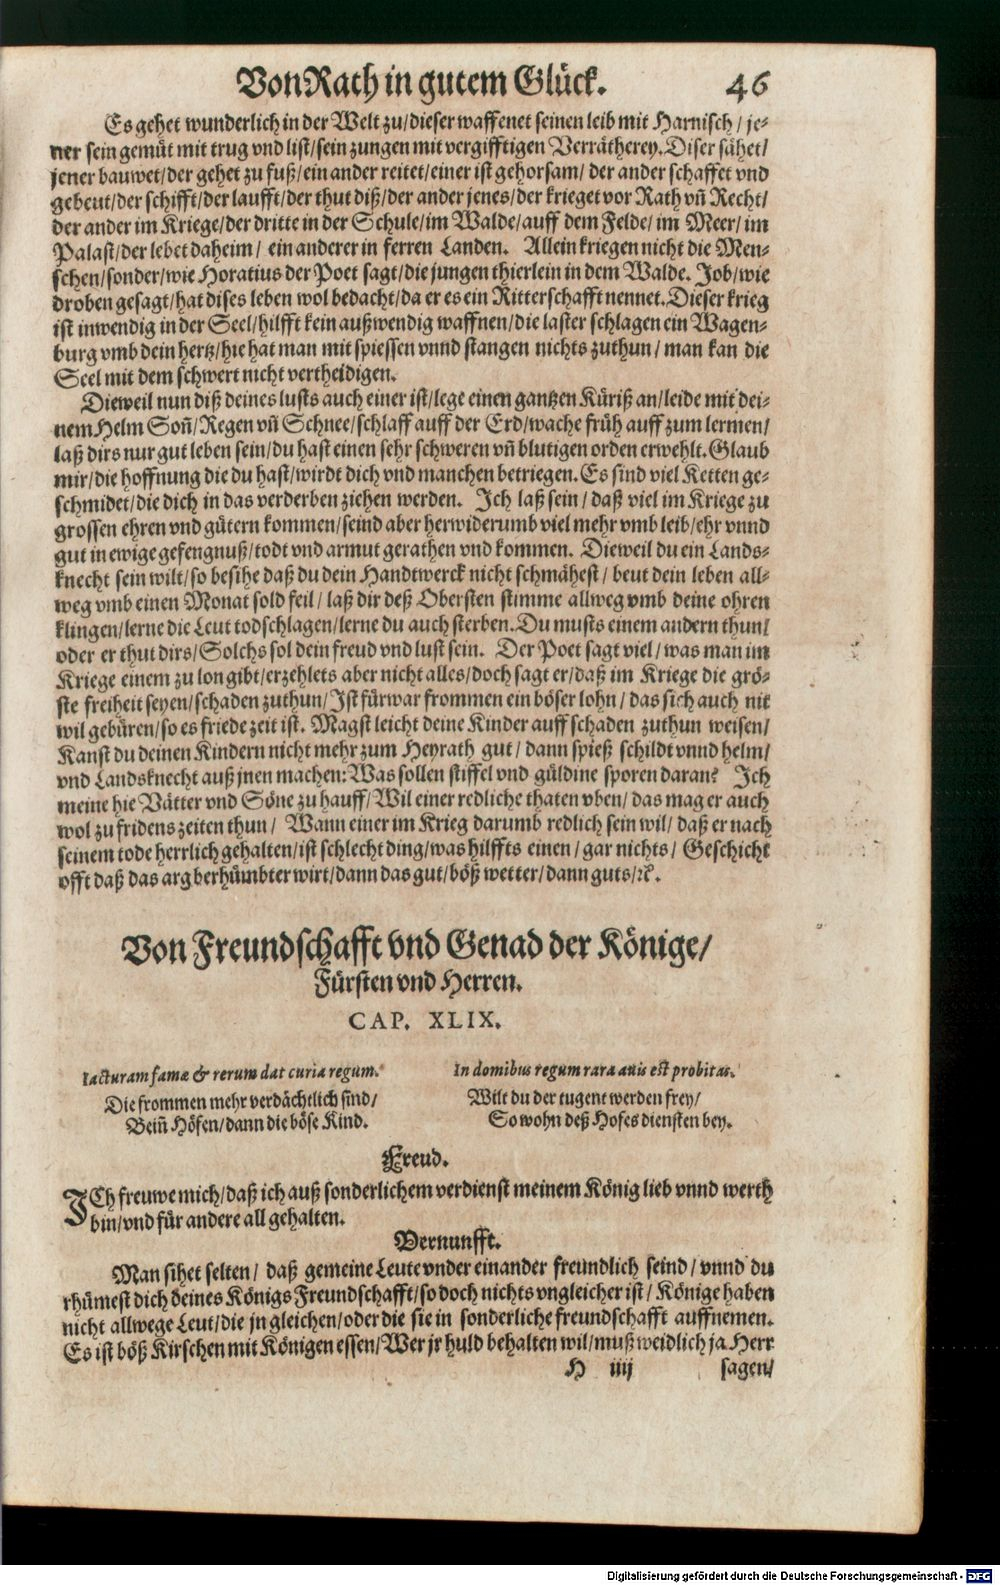 Von Rath in gutem Glück. 46
Es gehet wunderlich in der Welt zu/dieser waffenet seinen leib mit Harnisch/ je-
ner sein gemüt mit trug vnd list/sein zungen mit vergifftigen Verrätherey. Diser sähet/
jener bauwet/der gehet zu fuß/ein ander reitet/einer ist gehorsam/ der ander schaffet vnd
gebeut/der schifft/der laufft/der thut diß/der ander jenes/der krieget vor Rath vñ Recht/
der ander im Kriege/der dritte in der Schule/im Walde/auff dem Felde/ im Meer/ im
Palast/der lebet daheim/ ein anderer in ferren Landen. Allein kriegen nicht die Men-
schen/sonder/wie Horatius der Poet sagt/die jungen thierlein in dem Walde. Job/wie
droben gesagt/hat dises leben wol bedacht/da er es ein Ritterschafft nennet. Dieser krieg
ist inwendig in der Seel/hilfft kein außwendig waffnen/die laster schlagen ein Wagen-
burg vmb dein hertz/hie hat man mit spiessen vnnd stangen nichts zuthun/ man kan die
Seel mit dem schwert nicht vertheidigen.
Dieweil nun diß deines lusts auch einer ist/lege einen gantzen Küriß an/leide mit dei-
nem Helm Soñ/Regen vñ Schnee/schlaff auff der Erd/wache früh auff zum lermen/
laß dirs nur gut leben sein/du hast einen sehr schweren vñ blutigen orden erwehlt. Glaub
mir/die hoffnung die du hast/wirdt dich vnd manchen betriegen. Es sind viel Ketten ge-
schmidet/die dich in das verderben ziehen werden. Ich laß sein/ daß viel im Kriege zu
grossen ehren vnd gütern kommen/seind aber herwiderumb viel mehr vmb leib/ehr vnnd
gut in ewige gefengnuß/todt vnd armut gerathen vnd kommen. Dieweil du ein Lands-
knecht sein wilt/so besihe daß du dein Handtwerck nicht schmähest/ beut dein leben all-
weg vmb einen Monat sold feil/ laß dir deß Obersten stimme allweg vmb deine ohren
klingen/lerne die Leut todschlagen/lerne du auch sterben. Du musts einem andern thun/
oder er thut dirs/Solchs sol dein freud vnd lust sein. Der Poet sagt viel/ was man im
Kriege einem zu lon gibt/erzehlets aber nicht alles/doch sagt er/daß im Kriege die grö-
ste freiheit seyen/schaden zuthun/Ist fürwar frommen ein böser lohn/ das sich auch nit
wil gebüren/so es friede zeit ist. Magst leicht deine Kinder auff schaden zuthun weisen/
Kanst du deinen Kindern nicht mehr zum Heyrath gut/ dann spieß schildt vnnd helm/
vnd Landsknecht auß jnen machen: Was sollen stiffel vnd güldine sporen daran? Ich
meine hie Vätter vnd Söne zu hauff/Wil einer redliche thaten vben/ das mag er auch
wol zu fridens zeiten thun/ Wann einer im Krieg darumb redlich sein wil/ daß er nach
seinem tode herrlich gehalten/ist schlecht ding/was hilffts einen/ gar nichts/ Geschicht
offt daß das arg berhümbter wirt/dann das gut/böß wetter/dann guts/ꝛc.
Von Freundschafft vnd Genad der Könige/
Fürsten vnd Herren.
CAP. XLIX.
Iacturam famæ & rerum dat curia regum.
Die frommen mehr verdächtlich sind/
Beiñ Höfen/dann die böse Kind.
In domibus regum rara auis est probitas.
Wilt du der tugent werden frey/
So wohn deß Hofes diensten bey.
Freud.
ICh freuwe mich/daß ich auß sonderlichem verdienst meinem König lieb vnnd werth
bin/vnd für andere all gehalten.
Vernunfft.
Man sihet selten/ daß gemeine Leute vnder einander freundlich seind/ vnnd du
rhümest dich deines Königs Freundschafft/so doch nichts vngleicher ist/ Könige haben
nicht allwege Leut/die jn gleichen/oder die sie in sonderliche freundschafft auffnemen.
Es ist böß Kirschen mit Königen essen/Wer jr huld behalten wil/muß weidlich ja Herr
H iiij sagen/
Digitalisierung gefördert durch die Deutsche Forschungsgemeinschaft - DFG